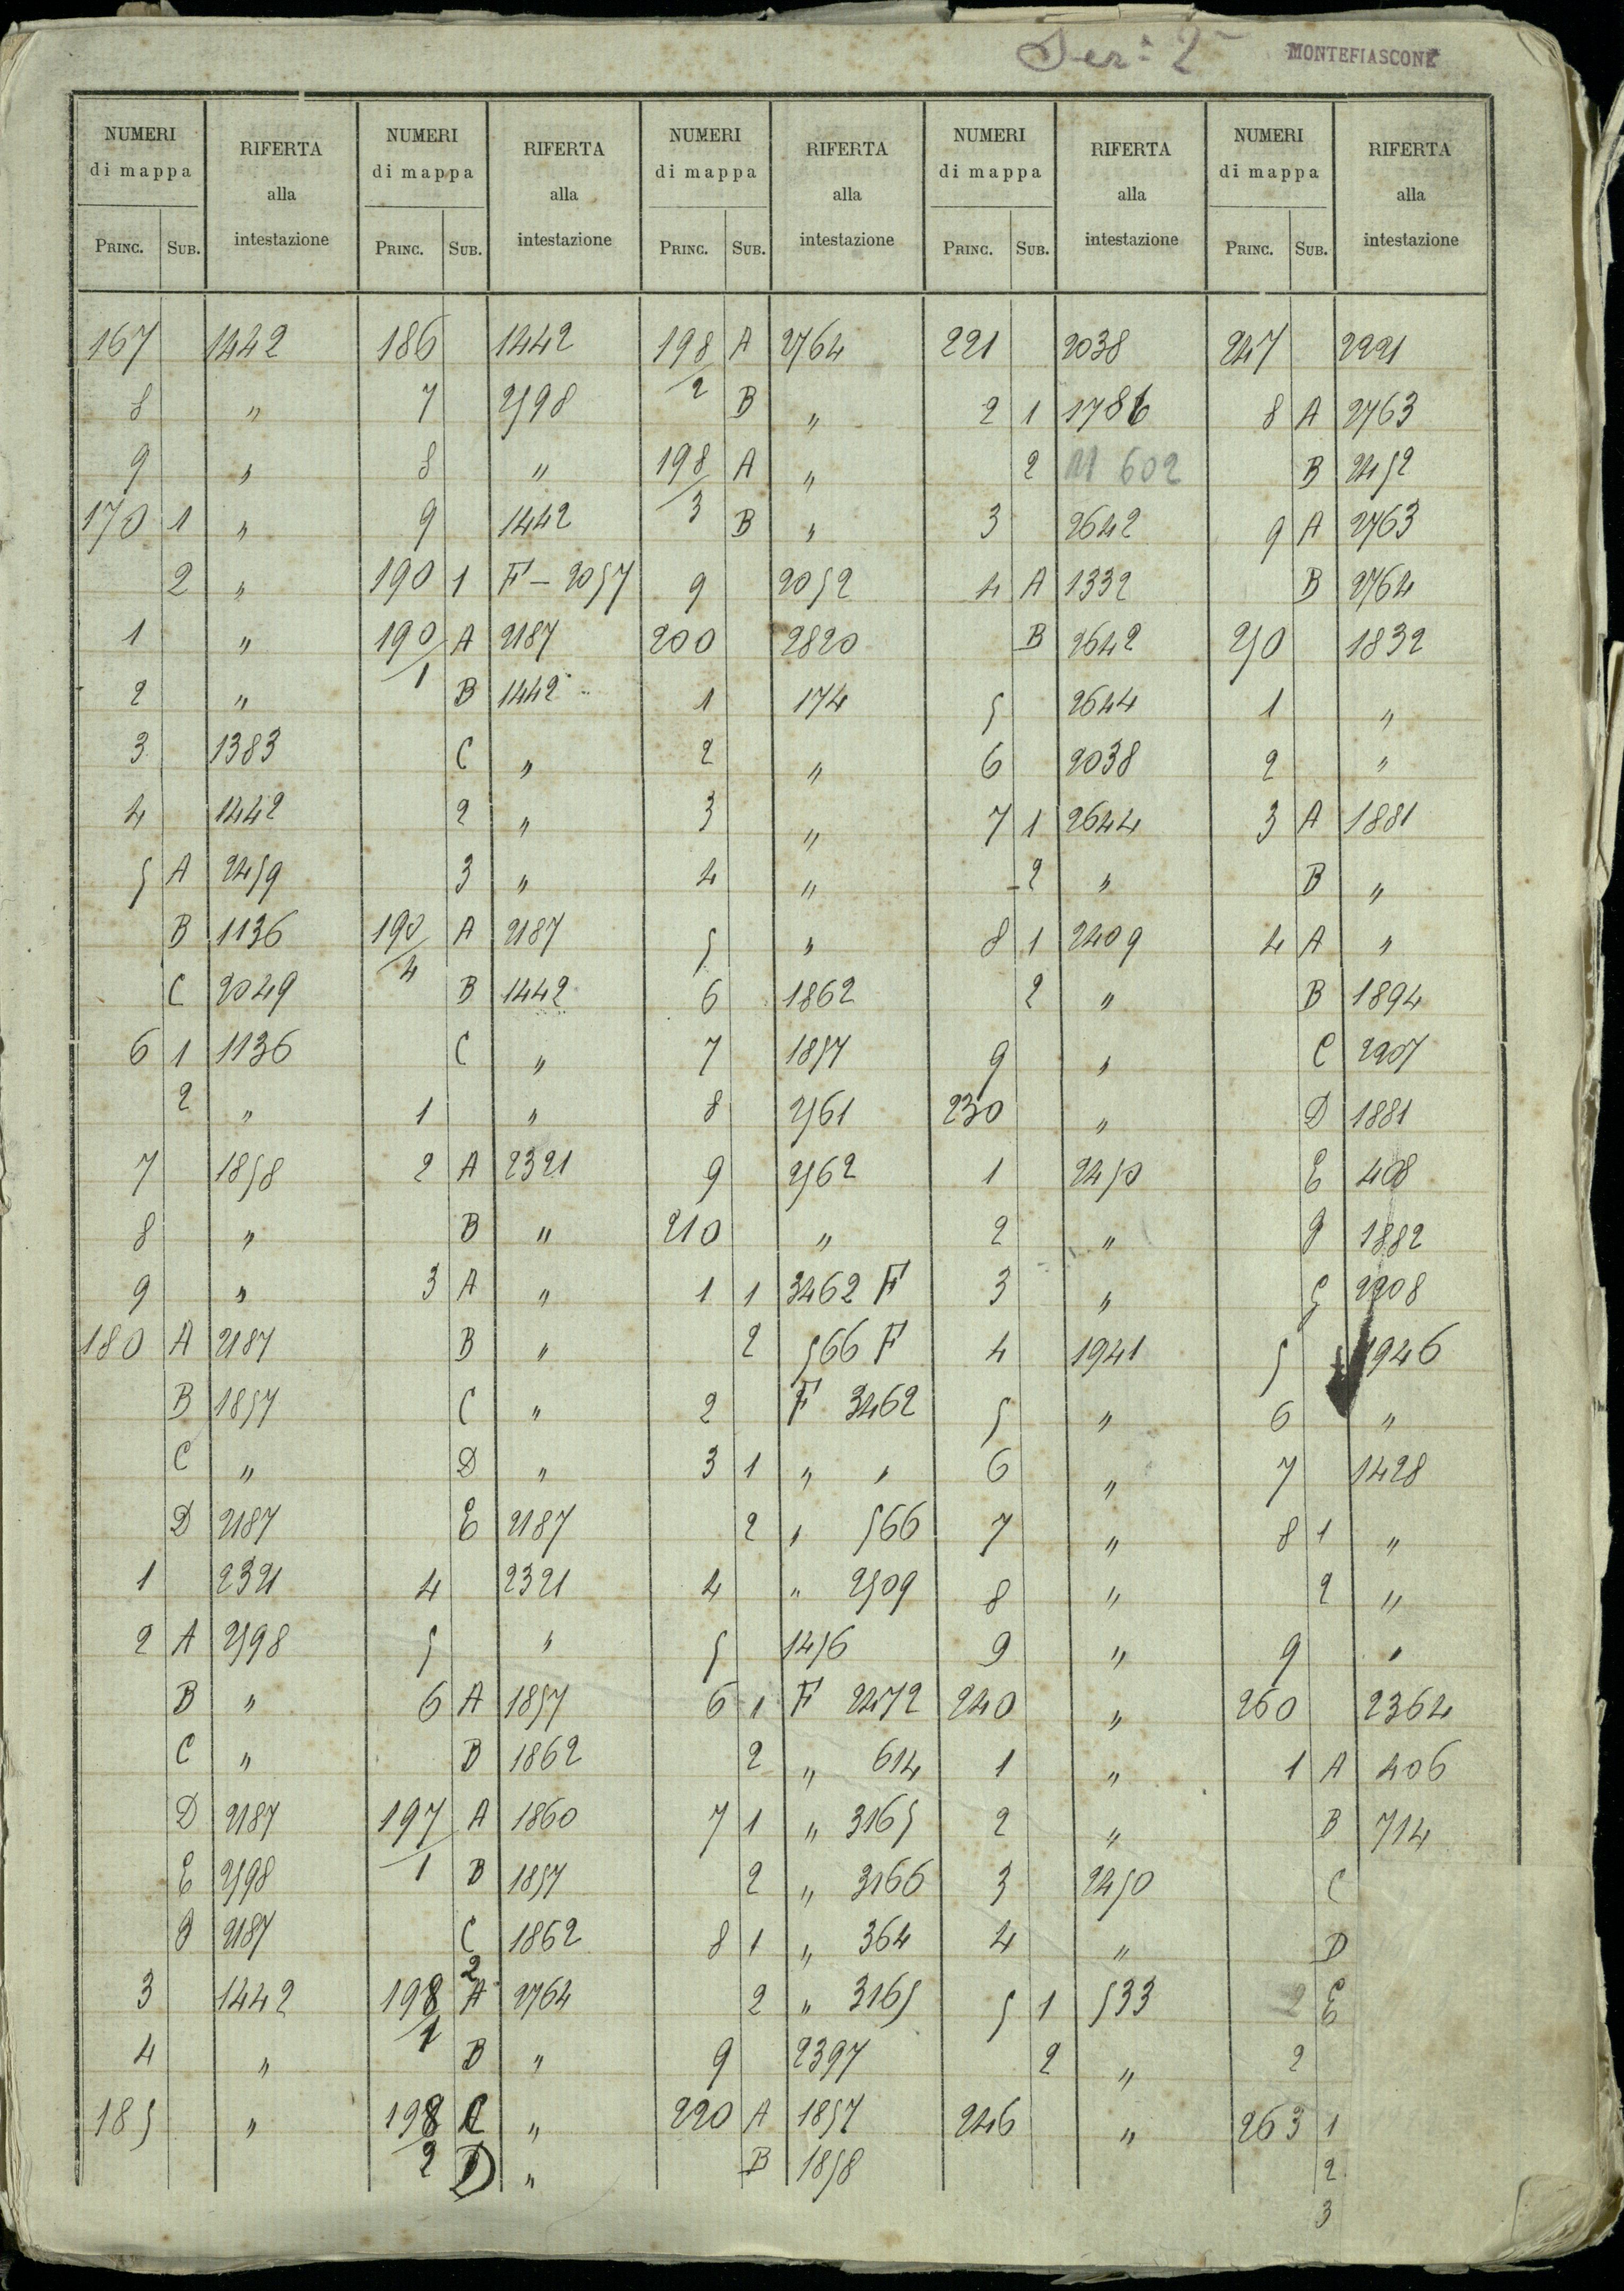 Sez: 2ª MONTEFIASCONE
NUMERI di mappa RIFERTA alla intestazione NUMERI di mappa RIFERTA alla intestazione NUMERI di mappa RIFERTA alla intestazione NUMERI di mappa RIFERTA alla intestazione NUMERI di mappa RIFERTA alla intestazione
PRINC. SUB. PRINC. SUB. PRINC. SUB. PRINC. SUB. PRINC. SUB.
167 1442 186 1442 198/2 A 2764 221 2038 247 2221
8 " 7 2598 B " 2 1 1786 8 A 2763
9 " 8 " 198/3 A " 2 602 B 2452
170 1 " 9 1442 B " 3 2642 9 A 2763
2 " 190 1 F - 2057 9 2052 4 A 1332 B 2764
1 " 190/1 A 2187 200 2820 B 2642 250 1832
2 " B 1442 1 174 5 2644 1 "
3 1383 C " 2 " 6 2038 2 "
4 1442 2 " 3 " 7 1 2644 3 A 1881
5 A 2459 3 " 4 " 2 " B "
B 1136 190/4 A 2187 5 " 8 1 2409 4 A "
C 2049 B 1442 6 1862 2 " B 1894
6 1 1136 C " 7 1857 9 " C 2207
2 " 1 " 8 2561 230 " D 1881
7 1858 2 A 2321 9 2562 1 2450 E 408
8 " B " 210 " 2 " F 1882
9 " 3 A " 1 1 3462 F 3 " G 2208
180 A 2187 B " 2 566 F 4 1941 5 1946
B 1857 C " 2 F 3462 5 " 6 "
C " D " 3 1 " " 6 " 7 1428
D 2187 E 2187 2 " 566 7 " 8 1 "
1 2321 4 2321 4 " 2509 8 " 2 "
2 A 2598 5 " 5 1456 9 " 9 "
B " 6 A 1857 6 1 F 2472 240 " 260 2364
C " B 1862 2 " 614 1 " 1 A 406
D 2187 197/1 A 1860 7 1 " 3165 2 " B 714
E 2598 B 1857 2 " 3166 3 2450 C
F 2187 C 1862 8 1 " 364 4 " D
3 1442 198/1 2 A 2764 2 " 3165 5 1 533 2 E
4 " B " 9 2397 2 " 2
185 " 198/2 C " 220 A 1857 246 " 263 1
D " B 1858 2
3